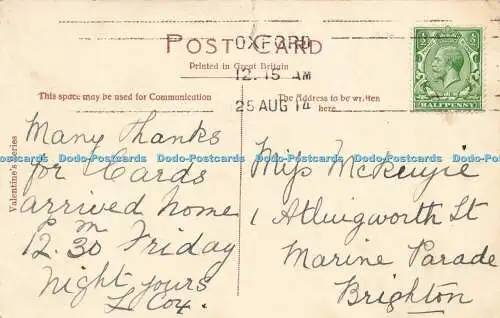 POST CARD
OXFORD
Printed in Great Britain
12.15 AM
25 AUG 14
This space may be used for Communication
The Address to be written
here
HALFPENNY
Valentine's Series
Many thanks
for Cards
arrived home
p m
12.30 Friday
night yours
L Cox.
Miss McKenzie
1 Atlingworth St
Marine Parade
Brighton
Dodo-Postcards Dodo-Postcards Dodo-Postcards Dodo-Postcards Dodo-Postcards